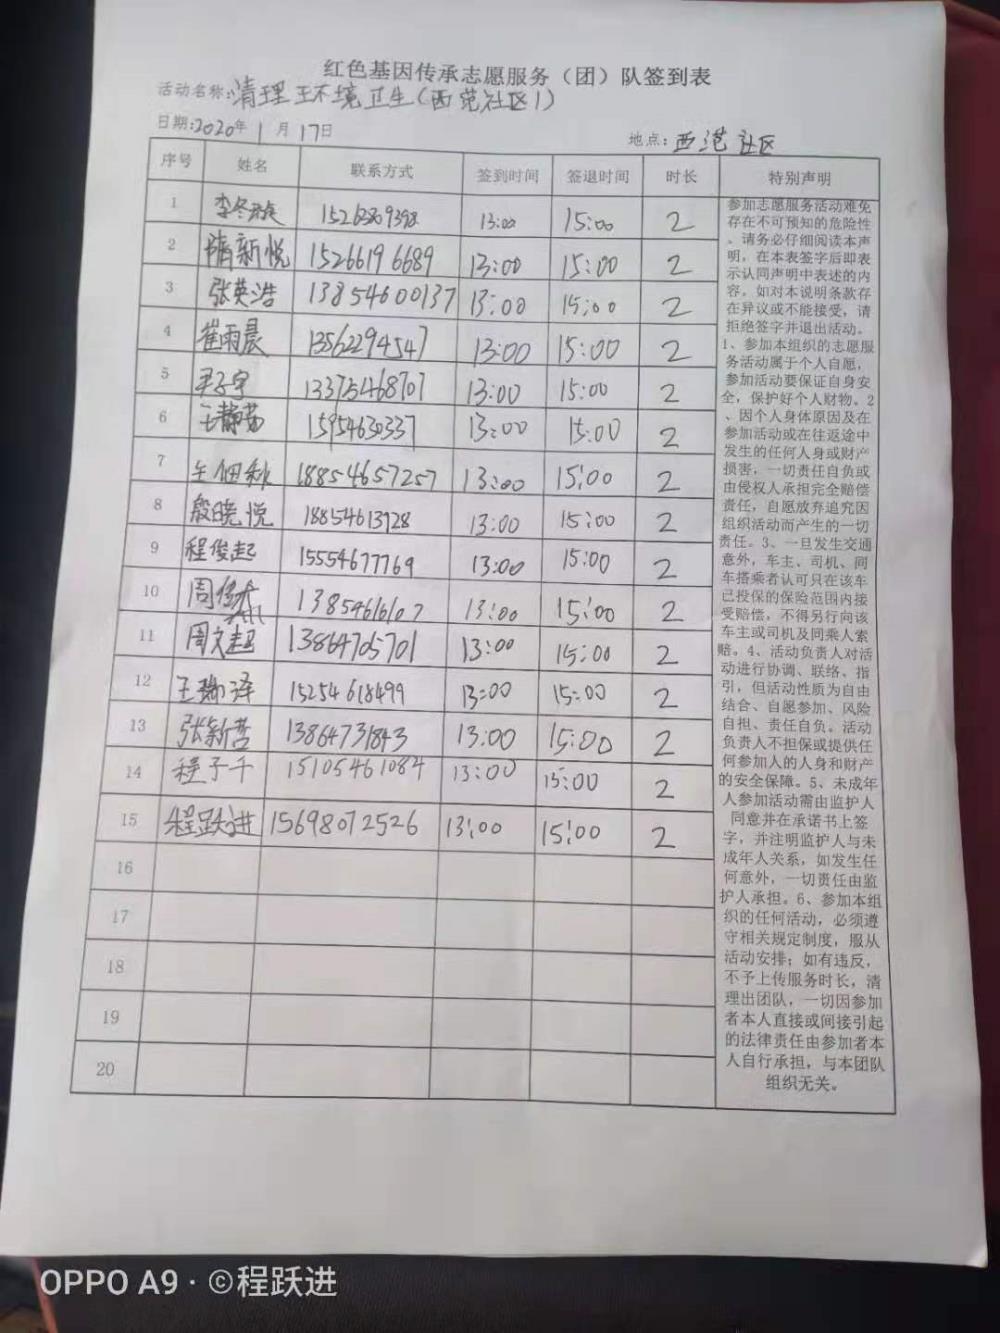 红色基因传承志愿服务（团）队签到表
活动名称:清理环境卫生(西范社区1)
日期:2020年1月17日 地点:西范社区
序号 姓名 联系方式 签到时间 签退时间 时长 特别声明
1 15262809398 13:00 15:00 2
2 隋新悦 15266196689 13:00 15:00 2
3 张英浩 13854600137 13:00 15:00 2
4 崔雨晨 13562294547 13:00 15:00 2
5 尹子宇 13375468707 13:00 15:00 2
6 王静茹 15954630337 13:00 15:00 2
7 18854657257 13:00 15:00 2
8 殷晓悦 18854613728 13:00 15:00 2
9 程俊起 15554677769 13:00 15:00 2
10 13854616107 13:00 15:00 2
11 周文起 13864705701 13:00 15:00 2
12 王瑞泽 15254618499 13:00 15:00 2
13 张新苦 13864731843 13:00 15:00 2
14 程子千 15105461084 13:00 15:00 2
15 程跃进 15698072526 13:00 15:00 2
16
17
18
19
20
参加志愿服务活动难免
存在不可预知的危险性
，请务必仔细阅读本声
明，在本表签字后即表
示认同声明中表述的内
容。如对本说明条款存
在异议或不能接受，请
拒绝签字并退出活动。
1、参加本组织的志愿服
务活动属于个人自愿，
参加活动要保证自身安
全，保护好个人财物。2
、因个人身体原因及在
参加活动或在往返途中
发生的任何人身或财产
损害，一切责任自负或
由侵权人承担完全赔偿
责任，自愿放弃追究因
组织活动而产生的一切
责任。3、一旦发生交通
意外，车主、司机、同
车搭乘者认可只在该车
已投保的保险范围内接
受赔偿，不得另行向该
车主或司机及同乘人索
赔。4、活动负责人对活
动进行协调、联络、指
引，但活动性质为自由
结合、自愿参加、风险
自担、责任自负。活动
负责人不担保或提供任
何参加人的人身和财产
的安全保障。5、未成年
人参加活动需由监护人
同意并在承诺书上签
字，并注明监护人与未
成年人关系，如发生任
何意外，一切责任由监
护人承担。6、参加本组
织的任何活动，必须遵
守相关规定制度，服从
活动安排；如有违反，
不予上传服务时长，清
理出团队，一切因参加
者本人直接或间接引起
的法律责任由参加者本
人自行承担，与本团队
组织无关。
OPPO A9 · ©程跃进